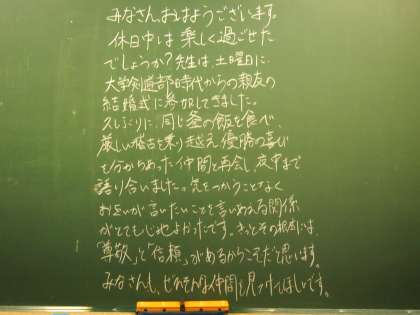 みなさん、おはようございます。
休日中は楽しく過ごせた
でしょうか？先生は、土曜日に、
大学剣道部時代からの親友の
結婚式に参加してきました。
久しぶりに、同じ釜の飯を食べ、
厳しい稽古を乗り越え、優勝の喜び
を分かちあった仲間と再会し、夜中まで
語り合いました。気をつかうことなく
お互いが言いたいことを言いあえる関係
がとても心地よかったです。きっとその根底には、
「尊敬」と「信頼」があるからこそだと思います。
みなさんも、ぜひそんな仲間を見つけてほしいです。